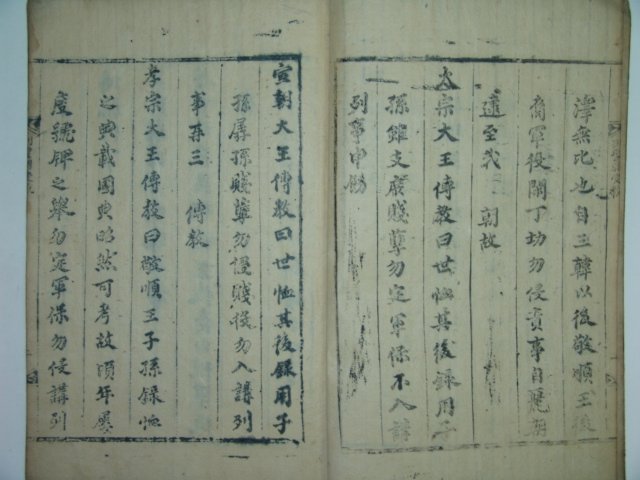 澤無比也自三韓以後敬順王後
裔軍役閑丁切勿侵責事自麗朝
逮至我 朝故
太宗大王傳敎曰世恤其後錄用子
孫雖支庶賤孽勿定軍保不入講
列事申飭
宣朝大王傳敎曰世恤其後錄用子
孫孱孫賤孽勿侵賤役勿入講列
事再三 傳敎
孝宗大王傳敎曰敬順王子孫錄恤
之典載國典昭然可考故頃年屢
度號牌之擧勿定軍保勿侵講列